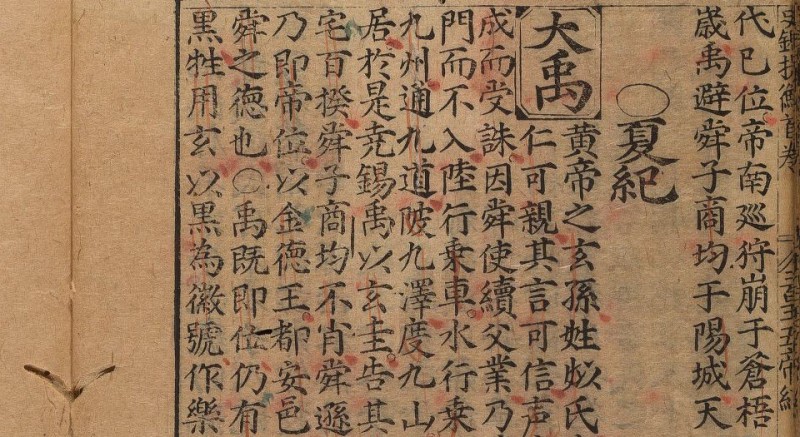 代已位帝南廵狩崩于蒼梧
嵗禹避舜子商均于陽城天
○夏紀
大禹
黃帝之玄孫姓姒氏
仁可親其言可信声
成而受誅因舜使續父業乃
門而不入陸行乗車水行乗
九州通九道陂九澤度九山
居於是尭錫禹以玄圭告其
宅百揆舜子商均不肖舜遜
乃即帝位以金德王都安邑
舜之德也○禹既即位仍有
黒牲用玄以黒為徽號作樂